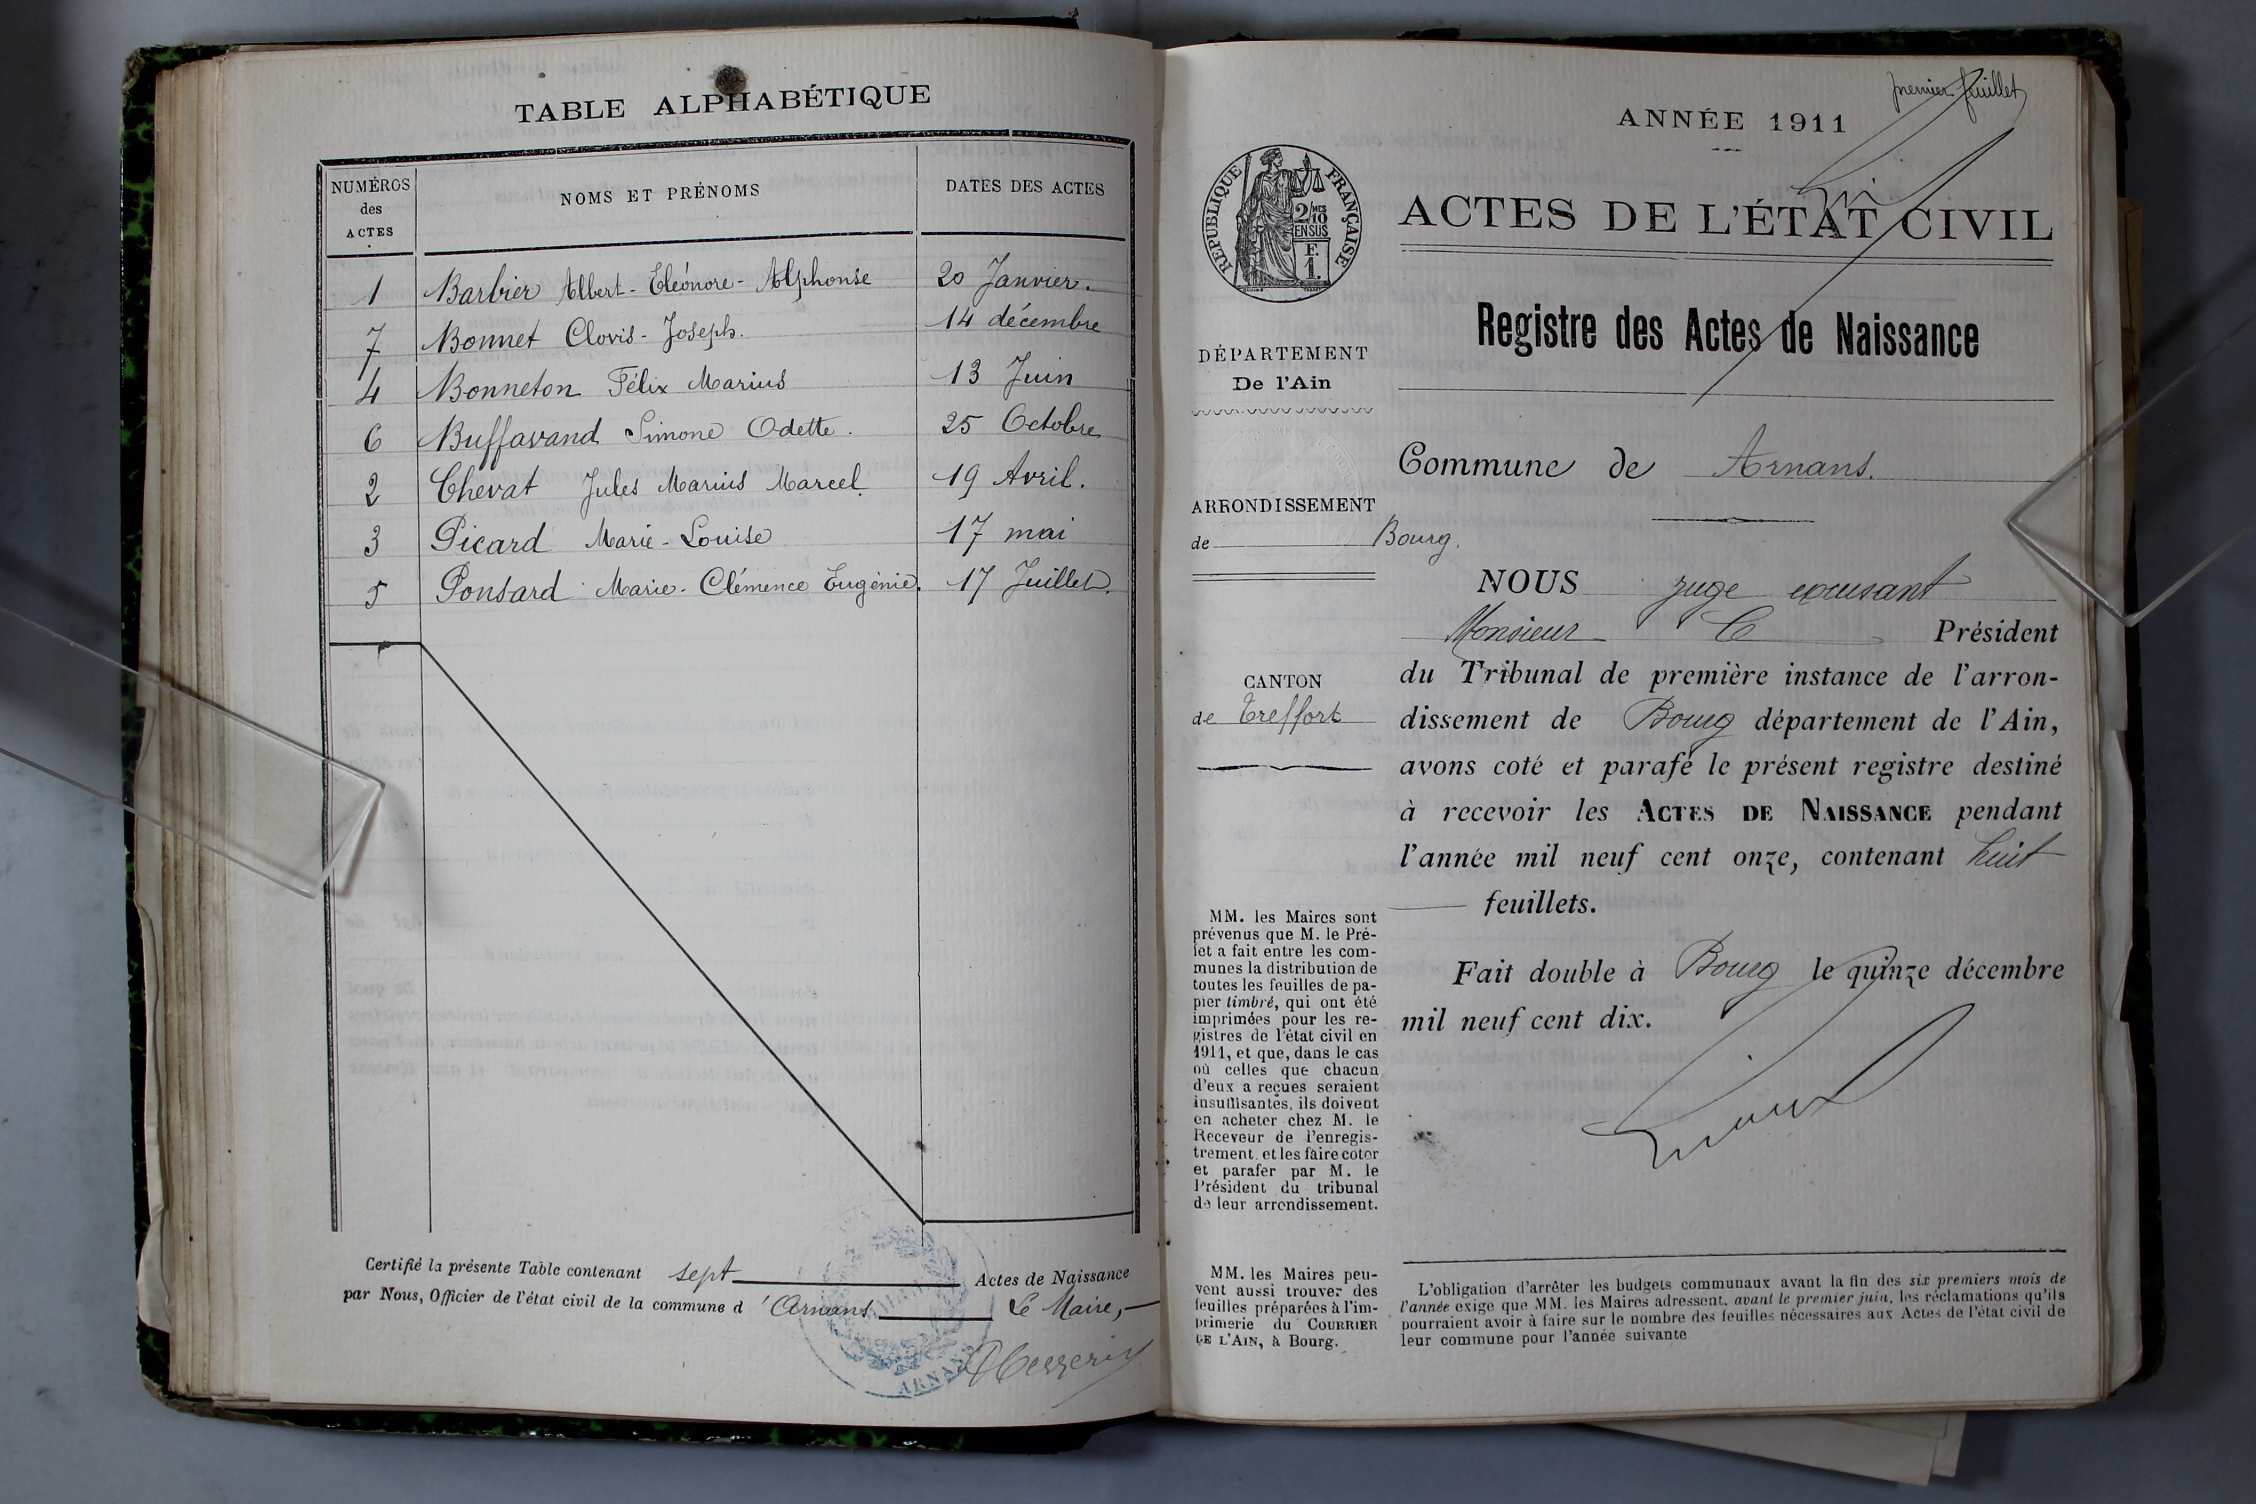 TABLE ALPHABÉTIQUE
NUMÉROS
des
ACTES
NOMS ET PRÉNOMS
DATES DES ACTES
1 Barbier Albert-Eléonore-Alphonse 20 Janvier.
7 Bonnet Clovis-Joseph. 14 décembre
4 Bonneton Félix Marius 13 Juin
6 Buffavand Simone Odette. 25 Octobre
2 Chevat Jules Marius Marcel. 19 Avril.
3 Picard Marie-Louise 17 mai
5 Ponsard Marie-Clémence Eugénie. 17 Juillet.
Certifié la présente Table contenant sept Actes de Naissance
par Nous, Officier de l'état civil de la commune d'Arnans Le Maire,
ARNANS
premier feuillet
ANNÉE 1911
RÉPUBLIQUE FRANÇAISE
2/MES
10
EN SUS
F.
1.
ACTES DE L'ÉTAT CIVIL
Registre des Actes de Naissance
DÉPARTEMENT
De l'Ain
Commune de Arnans.
ARRONDISSEMENT
de Bourg.
NOUS juge excusant
Monsieur Président
du Tribunal de première instance de l'arron-
CANTON
de Treffort
dissement de Bourg département de l'Ain,
avons coté et parafé le présent registre destiné
à recevoir les ACTES DE NAISSANCE pendant
l'année mil neuf cent onze, contenant huit
feuillets.
Fait double à Bourg le quinze décembre
mil neuf cent dix.
MM. les Maires sont
prévenus que M. le Pré-
fet a fait entre les com-
munes la distribution de
toutes les feuilles de pa-
pier timbré, qui ont été
imprimées pour les re-
gistres de l'état civil en
1911, et que, dans le cas
où celles que chacun
d'eux a reçues seraient
insuffisantes, ils doivent
en acheter chez M. le
Receveur de l'enregis-
trement et les faire coter
et parafer par M. le
Président du tribunal
de leur arrondissement.
MM. les Maires peu-
vent aussi trouver des
feuilles préparées à l'im-
primerie du COURRIER
DE L'AIN, à Bourg.
L'obligation d'arrêter les budgets communaux avant la fin des six premiers mois de
l'année exige que MM. les Maires adressent, avant le premier juin, les réclamations qu'ils
pourraient avoir à faire sur le nombre des feuilles nécessaires aux Actes de l'état civil de
leur commune pour l'année suivante